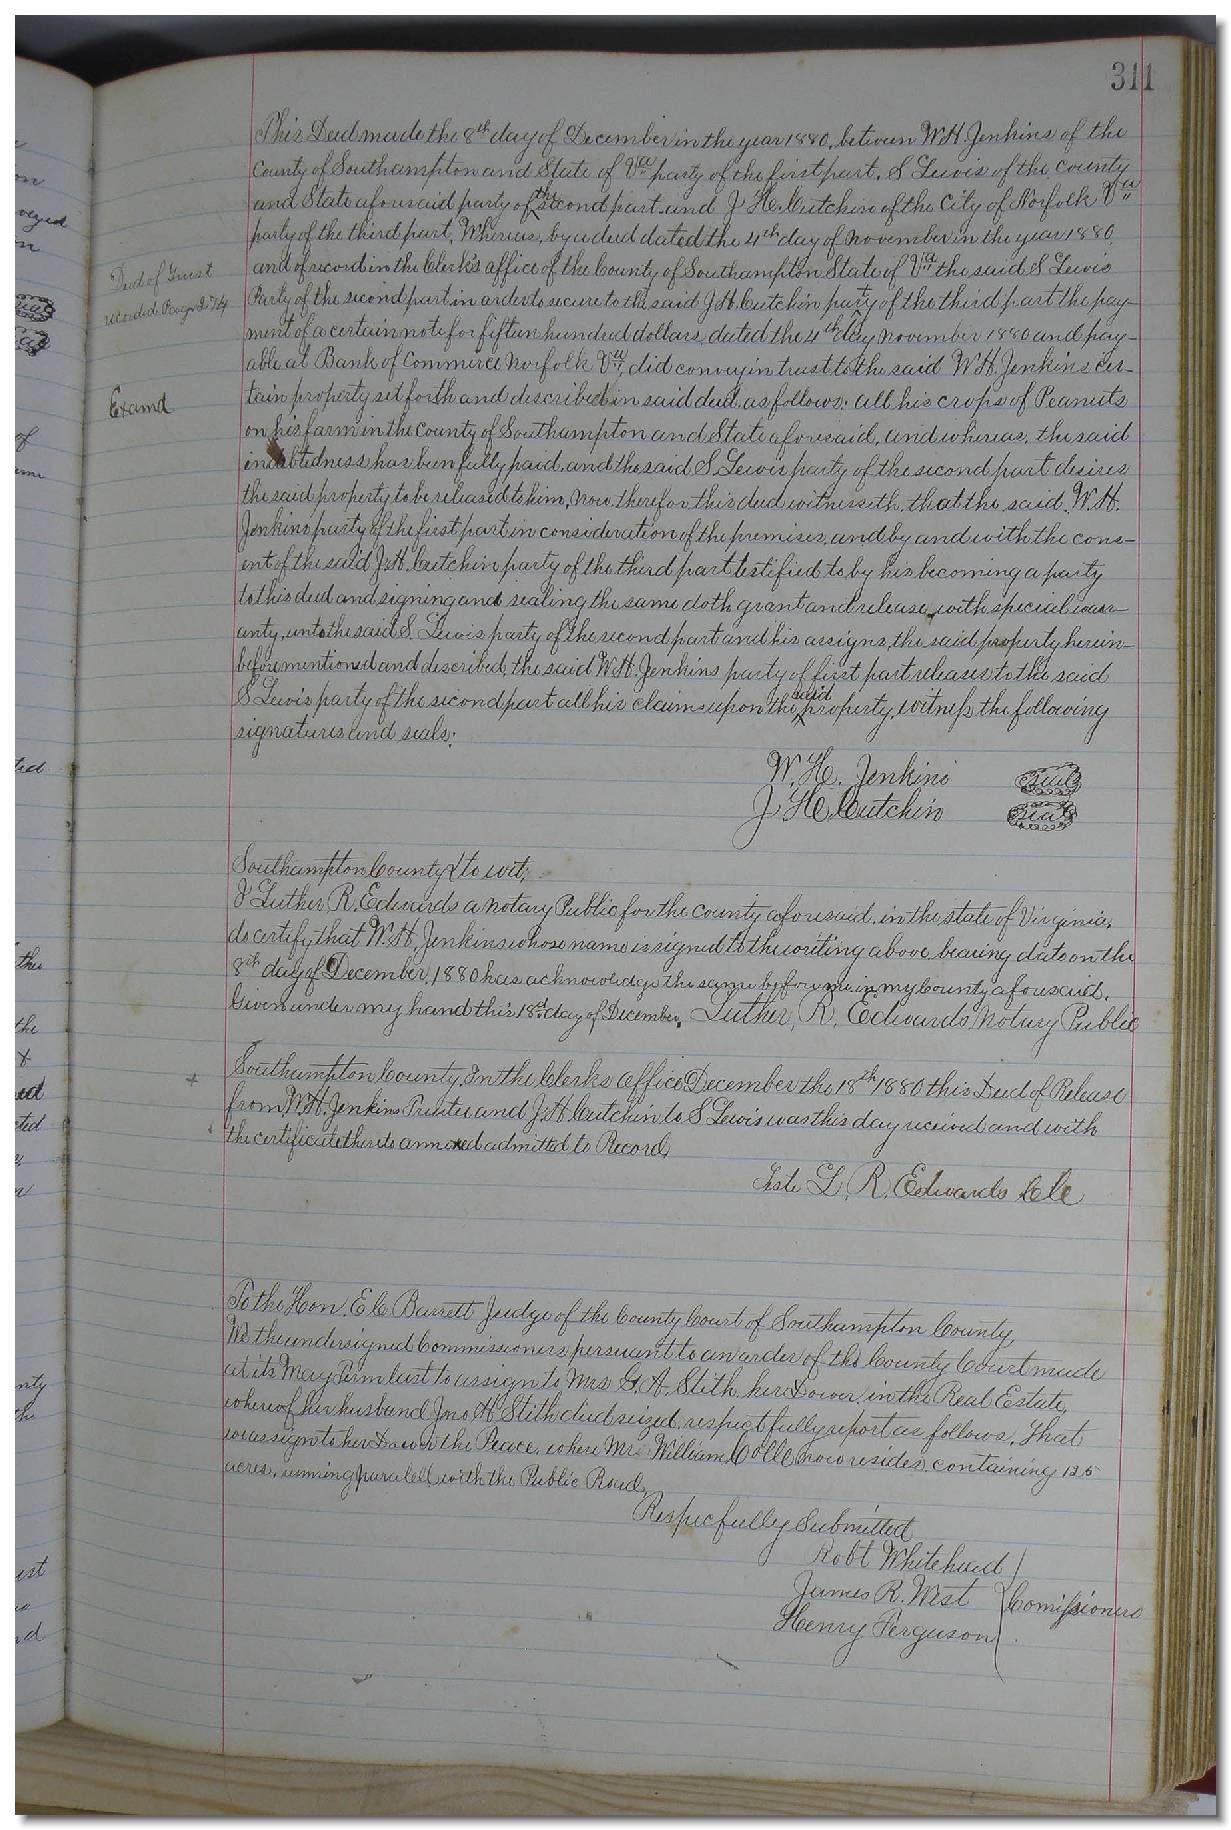 311
This Deed made the 8th day of December in the year 1880, between W.H. Jenkins of the
County of Southampton and State of Va party of the first part, S Lewis of the county
and State aforesaid party of the second part and J H. Cutchin of the City of Norfolk Va
party of the third part, Whereas, by a deed dated the 4th day of November in the year 1880,
and of record in the Clerk's office of the County of Southampton State of Va the said S Lewis
Party of the second part in order to secure to the said J.H. Cutchin party of the third part the pay-
ment of a certain note for fifteen hundred dollars, dated the 4th day November 1880 and pay-
able at Bank of Commerce Norfolk Va, did convey in trust to the said W.H. Jenkins cer-
tain property set forth and described in said deed as follows: all his crops of Peanuts
on his farm in the County of Southampton and State aforesaid, and whereas, the said
indebtedness has been fully paid, and the said S. Lewis party of the second part desires
the said property to be released to him, now therefor this deed witnesseth that the said W.H.
Jenkins party of the first part in consideration of the premises, and by and with the cons-
ent of the said J.H. Cutchin party of the third part testified to by his becoming a party
to this deed and signing and sealing the same doth grant and release, with special warr-
anty, unto the said S. Lewis party of the second part and his assigns, the said property herein-
before mentioned and described, the said W.H. Jenkins party of first part releases to the said
S Lewis party of the second part all his claims upon the said property, witness, the following
signatures and seals:
W. H. Jenkins Seal
J H Cutchin Seal
Deed of Trust
recorded Page 274
Examd
Southampton County to wit;
I Luther R. Edwards a Notary Public for the county aforesaid, in the state of Virginia,
do certify that W.H. Jenkins whose name is signed to the writing above bearing date on the
8th day of December, 1880 has acknowledge the same before me in my County aforesaid.
Given under my hand this 18th day of December, Luther, R, Edwards Notary Public
Southampton County, In the Clerks office December the 18th 1880 this Deed of Release
from W.H. Jenkins Trustee and J.H. Cutchin to S Lewis was this day received and with
the certificate thereto annexed admitted to Record,
Teste L. R. Edwards Clk
To the Hon. E C Barrett Judge of the County Court of Southampton County,
We the undersigned Commissioners persuant to an order of the County Court made
at its May Term last to assign to Mrs G. A. Stith her Dower, in the Real Estate,
whereof her husband Jno H Stith died seized, respectfully report as follows, That
we assign to her Dower the Peace, where Mr William Colle now resides, containing 125
acres, running paralell with the Public Road,
Respecfully Submitted
Robt Whitehead
James R. West Comissioners
Henry Ferguson